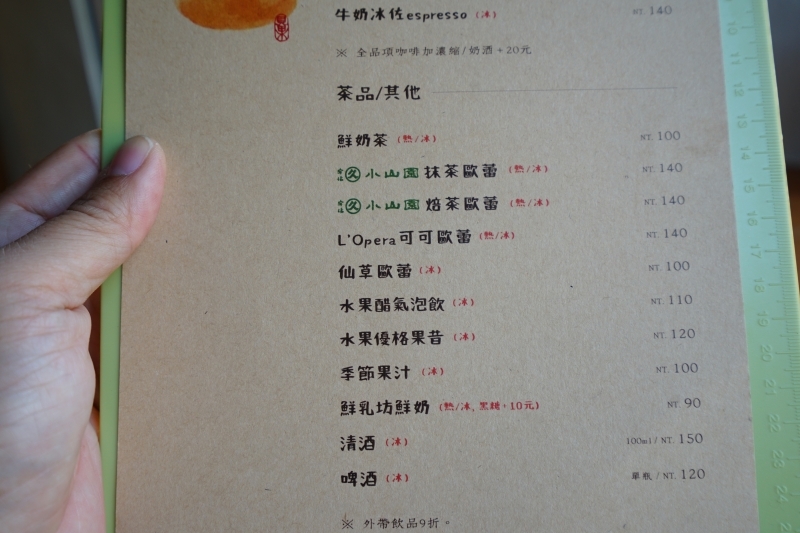 牛奶冰佐espresso (冰) NT. 140
※ 全品項咖啡加濃縮/奶酒+20元
茶品/其他
鮮奶茶 (熱/冰) NT. 100
小山園 抹茶歐蕾 (熱/冰) NT. 140
小山園 焙茶歐蕾 (熱/冰) NT. 140
L'Opera可可歐蕾 (熱/冰) NT. 140
仙草歐蕾 (冰) NT. 100
水果醋氣泡飲 (冰) NT. 110
水果優格果昔 (冰) NT. 120
季節果汁 (冰) NT. 100
鮮乳坊鮮奶 (熱/冰, 黑糖+10元) NT. 90
清酒 (冰) 100ml/ NT. 150
啤酒 (冰) 單瓶 / NT. 120
※ 外帶飲品9折。